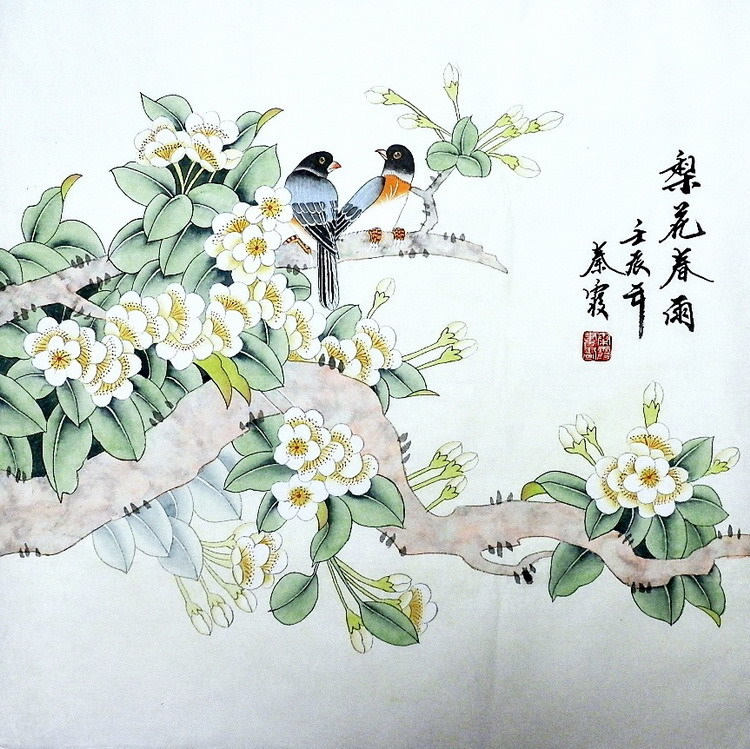 梨花春雨
壬辰年
秦霞